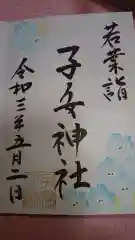 若葉詣
子安神社
令和三年五月二日